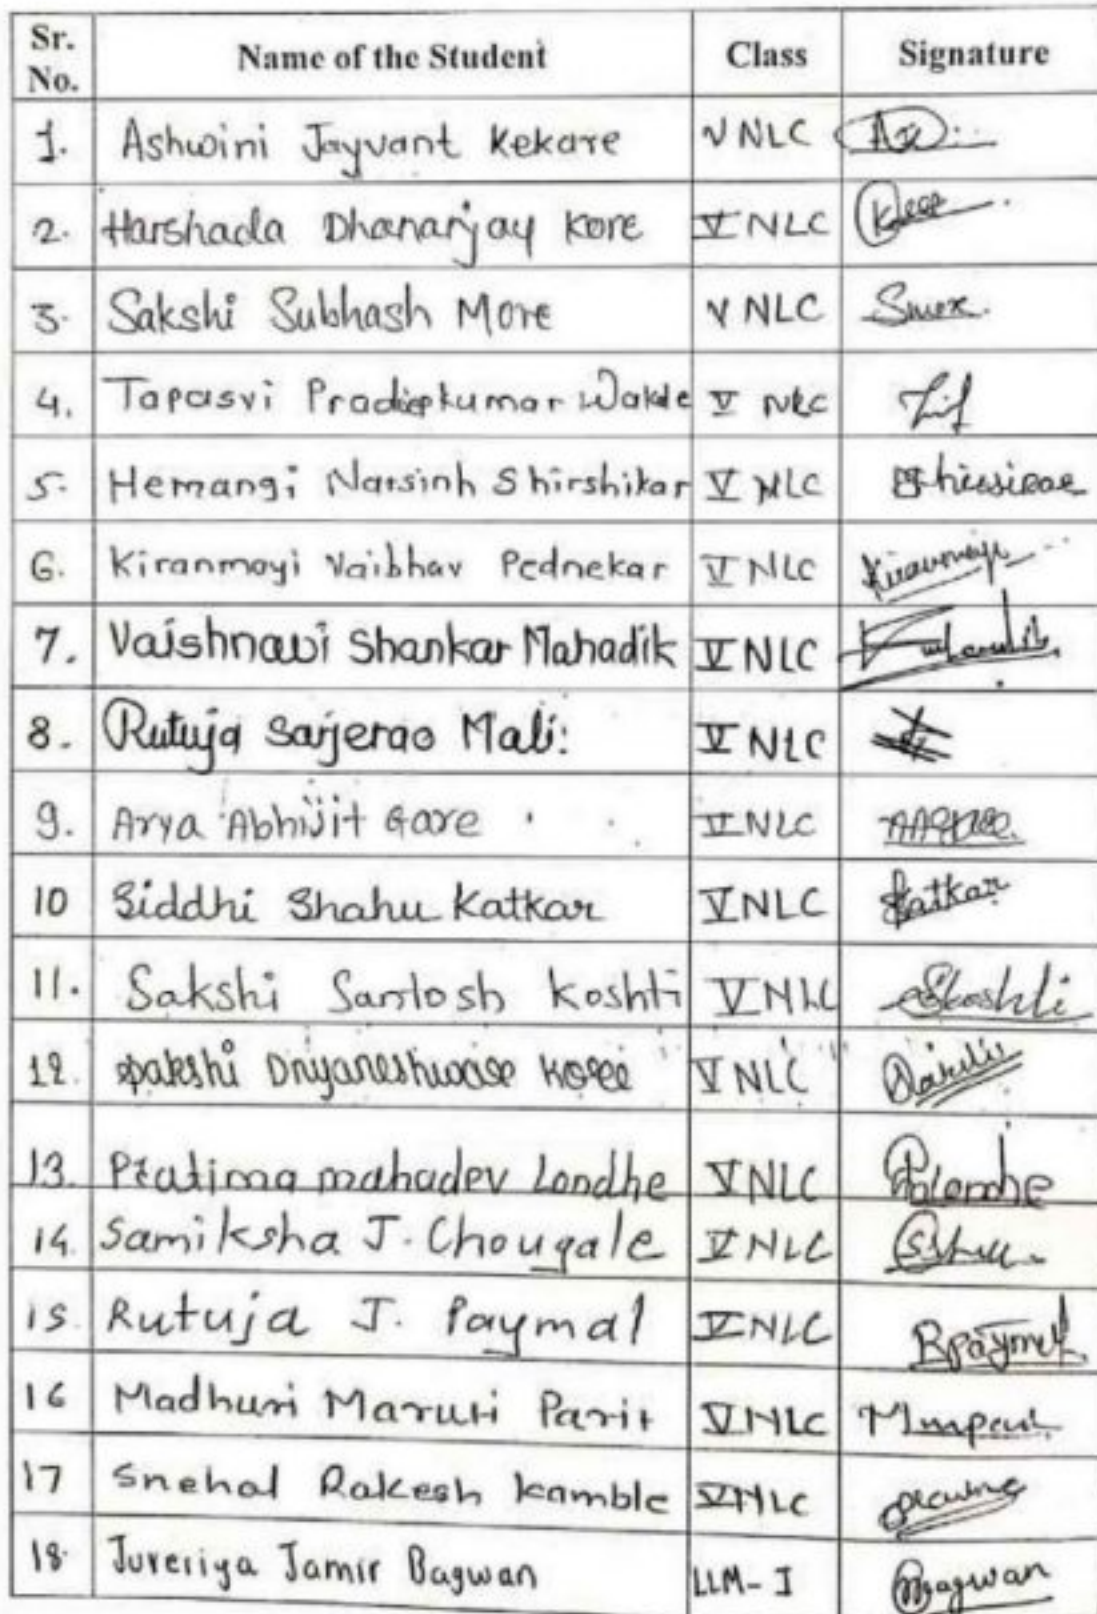 Sr. No. Name of the Student Class Signature
1. Ashwini Jayvant Kekare V NLC
2. Harshada Dhananjay Kore V NLC
3. Sakshi Subhash More V NLC
4. Tapasvi Pradipkumar Wakde V NLC
5. Hemangi Narsinh Shirshikar V NLC
6. Kiranmayi Vaibhav Pednekar V NLC Kiranmayi
7. Vaishnawi Shankar Mahadik V NLC
8. Rutuja Sarjerao Mali V NLC
9. Arya Abhijit Gore V NLC
10 Siddhi Shahu Katkar V NLC Katkar
11. Sakshi Santosh Koshti V NLC Skoshti
12. Sakshi Dnyaneshwar V NLC
13. Pratima mahadev Londhe V NLC
14. Samiksha J. Chougale V NLC
15. Rutuja J. Paymal V NLC Rpaymal
16 Madhuri Maruti Parit V NLC
17 Snehal Rakesh Kamble V NLC
18. Juveriya Jamir Bagwan LLM-I Bagwan